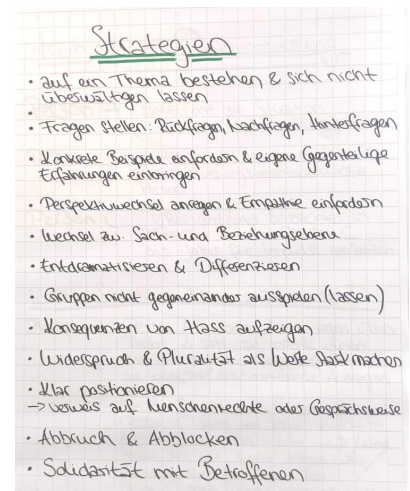 Strategien
• auf ein Thema bestehen & sich nicht
überwältigen lassen
•
• Fragen stellen: Rückfragen, Nachfragen, Hinterfragen
• Konkrete Beispiele einfordern & eigene gegenteilige
Erfahrungen einbringen
• Perspektivwechsel anregen & Empathie einfordern
• Wechsel zw. Sach- und Beziehungsebene
• Entdramatisieren & Differenzieren
• Gruppen nicht gegeneinander ausspielen (lassen)
• Konsequenzen von Hass aufzeigen
• Widerspruch & Pluralität als Werte stark machen
• Klar positionieren
→ Verweis auf Menschenrechte oder Gesprächsweise
• Abbruch & Abblocken
• Solidarität mit Betroffenen